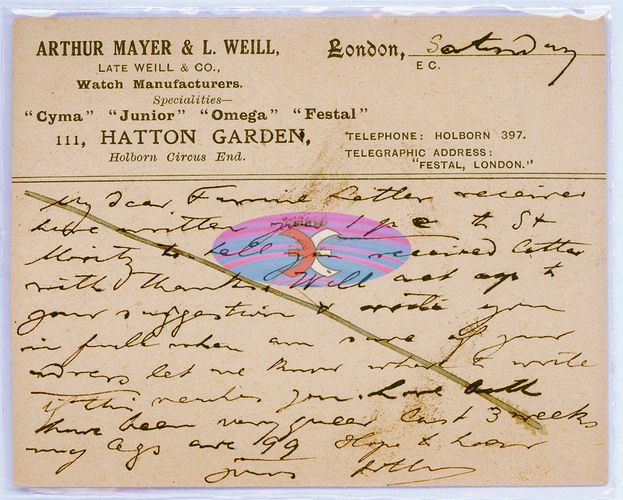 ARTHUR MAYER & L. WEILL,
LATE WEILL & CO.,
Watch Manufacturers.
Specialities—
"Cyma" "Junior" "Omega" "Festal"
111, HATTON GARDEN,
Holborn Circus End.
London, Saturday
E C.
TELEPHONE: HOLBORN 397.
TELEGRAPHIC ADDRESS:
"FESTAL, LONDON."
My dear Fannie Letter received
have written you 1 p c to St
Moritz to tell you received letter
with thanks, Will act up to
your suggestion & write you
in full when am sure of your
adress let me know what to write
if this reaches you. Love
have been very queer last 3 weeks
my legs are 99 Hope to hear
yours